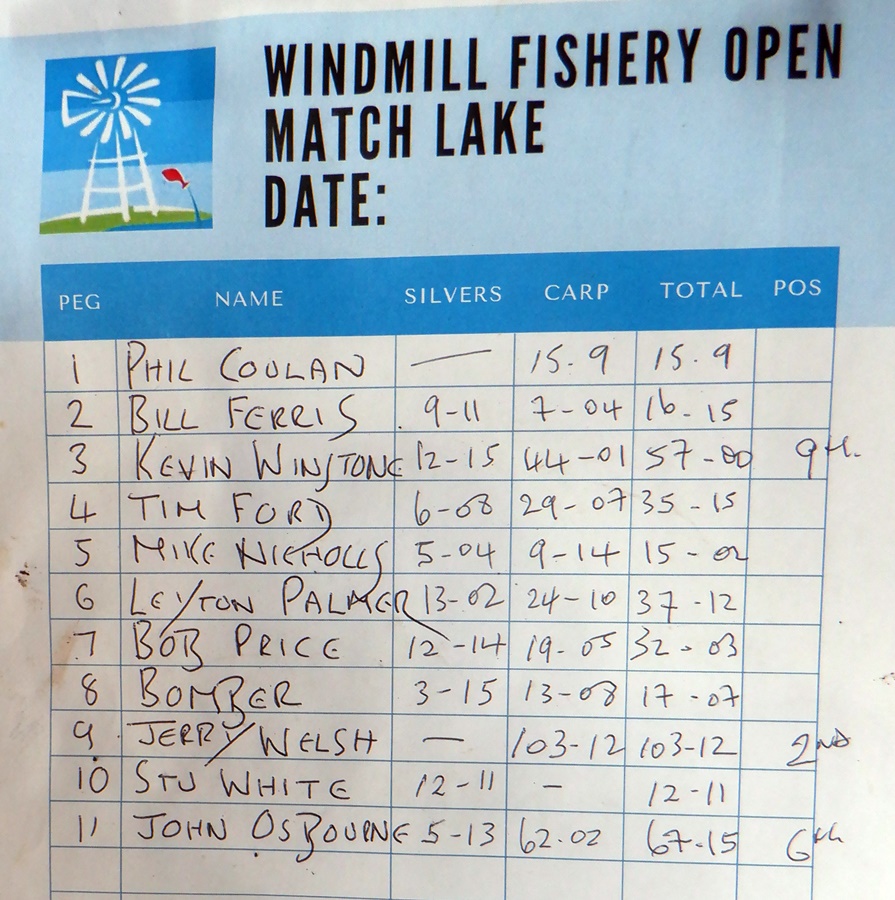 WINDMILL FISHERY OPEN
MATCH LAKE
DATE:
PEG NAME SILVERS CARP TOTAL POS
1 PHIL COULAN — 15.9 15.9
2 BILL FERRIS 9-11 7-04 16-15
3 KEVIN WINSTONE 12-15 44-01 57-00 9th
4 TIM FORD 6-08 29-07 35-15
5 MIKE NICHOLLS 5-04 9-14 15-02
6 LEYTON PALMER 13-02 24-10 37-12
7 BOB PRICE 12-14 19-05 32-03
8 BOMBER 3-15 13-08 17-07
9 JERRY WELSH — 103-12 103-12 2ND
10 STU WHITE 12-11 - 12-11
11 JOHN OSBOURNE 5-13 62.02 67-15 6th